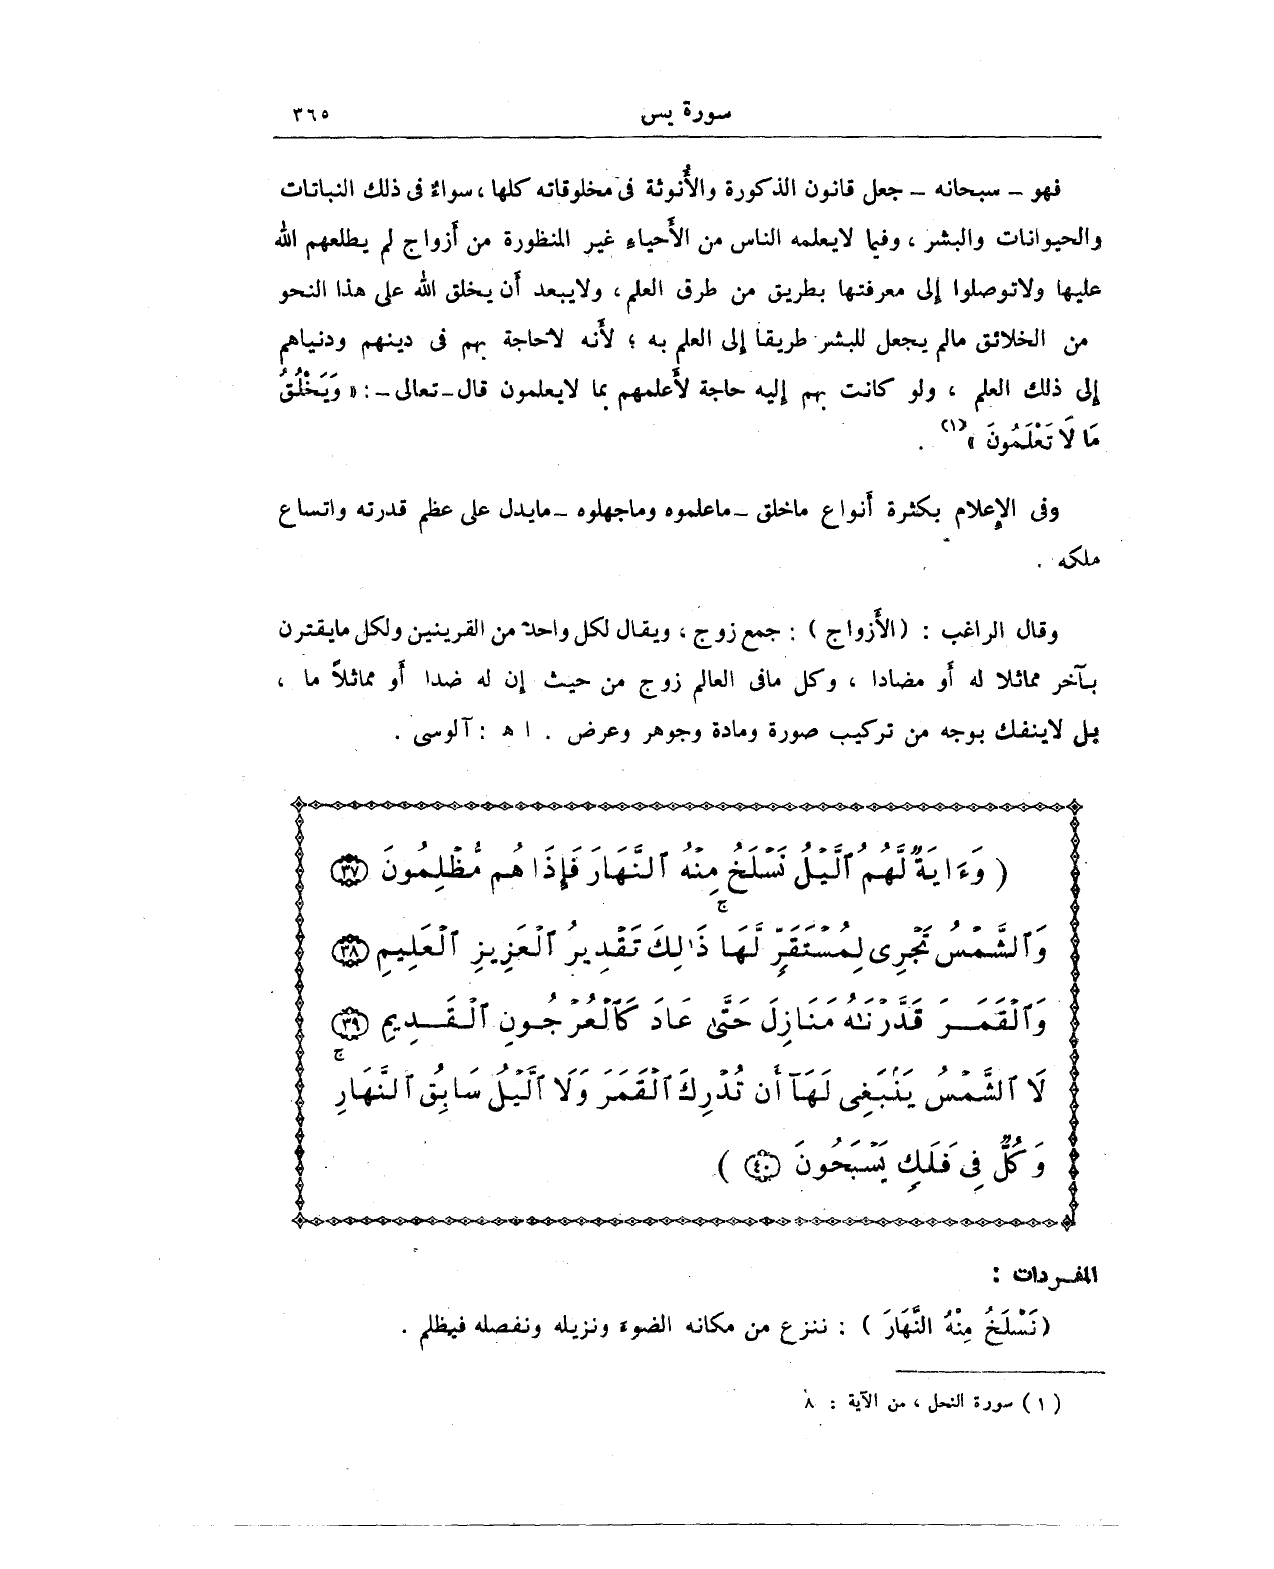 سورة يس ٣٦٥
فهو ـ سبحانه ـ جعل قانون الذكورة والأُنوثة فى مخلوقاته كلها ، سواءٌ فى ذلك النباتات
والحيوانات والبشر ، وفيما لايعلمه الناس من الأَحياءِ غير المنظورة من أَزواج لم يطلعهم الله
عليها ولاتوصلوا إلى معرفتها بطريق من طرق العلم ، ولايبعد أَن يخلق الله على هذا النحو
من الخلائق مالم يجعل للبشر طريقا إلى العلم به ؛ لأَنه لاحاجة بهم فى دينهم ودنياهم
إلى ذلك العلم ، ولو كانت بهم إليه حاجة لأَعلمهم بما لايعلمون قال ـ تعالى ـ : « وَيَخْلُقُ
مَا لَا تَعْلَمُونَ » (١) .
وفى الإِعلام بكثرة أَنواع ماخلق ـ ماعلموه وماجهلوه ـ مايدل على عظم قدرته واتساع
ملكه .
وقال الراغب : ( الأَزواج ) : جمع زوج ، ويقال لكل واحد من القرينين ولكل مايقترن
بآخر مماثلا له أَو مضادا ، وكل مافى العالم زوج من حيث إن له ضدا أَو مماثلاً ما ،
بل لاينفك بوجه من تركيب صورة ومادة وجوهر وعرض . ا ه : آلوسى .
( وَءَايَةٌ لَّهُمُ ٱلَّيْلُ نَسْلَخُ مِنْهُ ٱلنَّهَارَ فَإِذَا هُم مُّظْلِمُونَ ٣٧
وَٱلشَّمْسُ تَجْرِى لِمُسْتَقَرٍّ لَّهَا ۚ ذَٰلِكَ تَقْدِيرُ ٱلْعَزِيزِ ٱلْعَلِيمِ ٣٨
وَٱلْقَمَرَ قَدَّرْنَٰهُ مَنَازِلَ حَتَّىٰ عَادَ كَٱلْعُرْجُونِ ٱلْقَدِيمِ ٣٩
لَا ٱلشَّمْسُ يَنۢبَغِى لَهَآ أَن تُدْرِكَ ٱلْقَمَرَ وَلَا ٱلَّيْلُ سَابِقُ ٱلنَّهَارِ ۚ
وَكُلٌّ فِى فَلَكٍ يَسْبَحُونَ ٤٠ )
المفردات :
( نَسْلَخُ مِنْهُ النَّهَارَ ) : ننزع من مكانه الضوءَ ونزيله ونفصله فيظلم .
( ١ ) سورة النحل ، من الآية : ٨